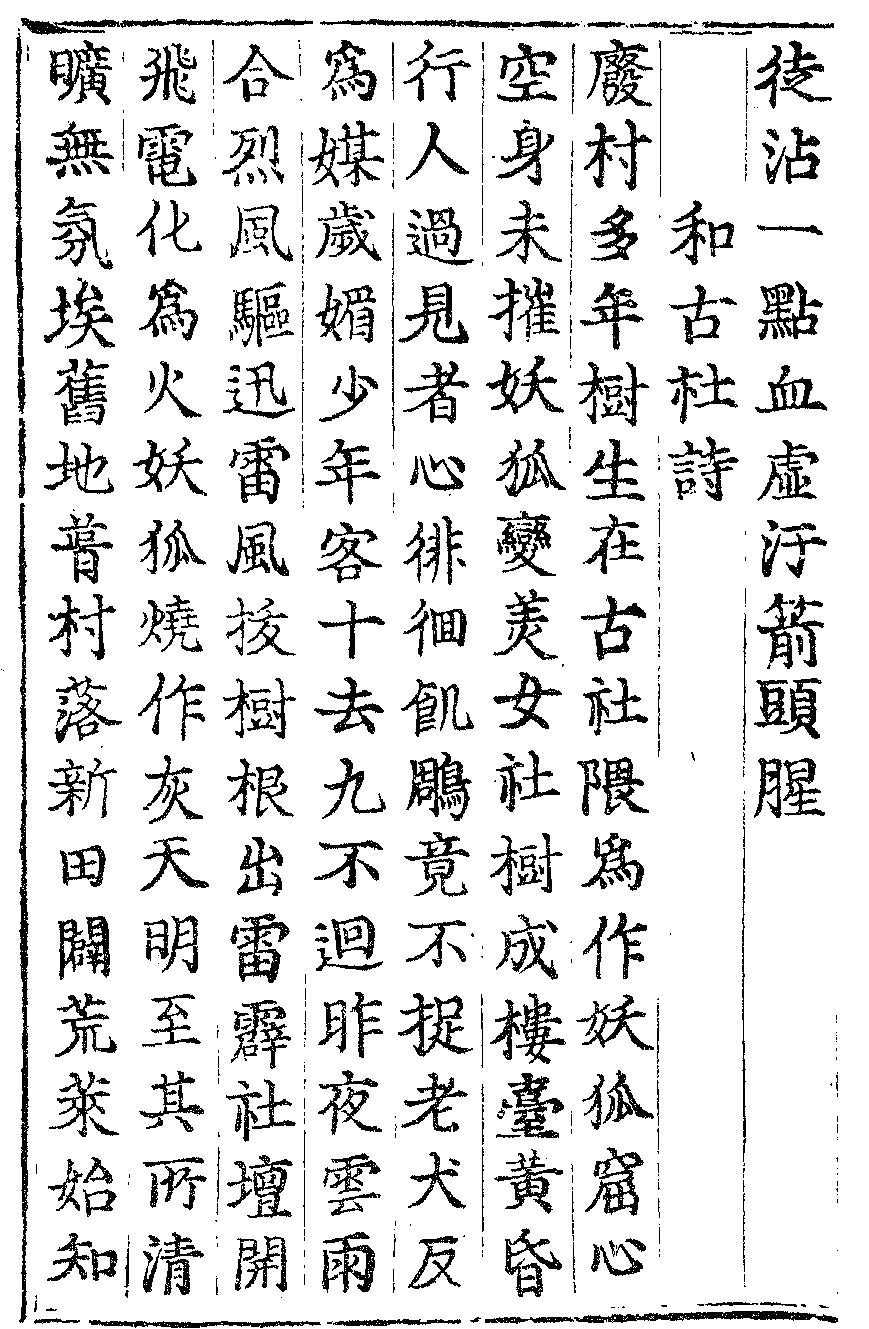 徒沾一點血虛汙箭頭腥
和古杜詩
廢村多年樹生在古社隈爲作妖狐窟心
空身未摧妖狐變羙女社樹成樓臺黃昏
行人過見者心徘徊飢鵰竟不捉老犬反
爲媒歲媚少年客十去九不迴昨夜雲雨
合烈風驅迅雷風拔樹根出雷霹社壇開
飛電化爲火妖狐燒作灰天明至其所清
曠無氛埃舊地普村落新田闢荒萊始知